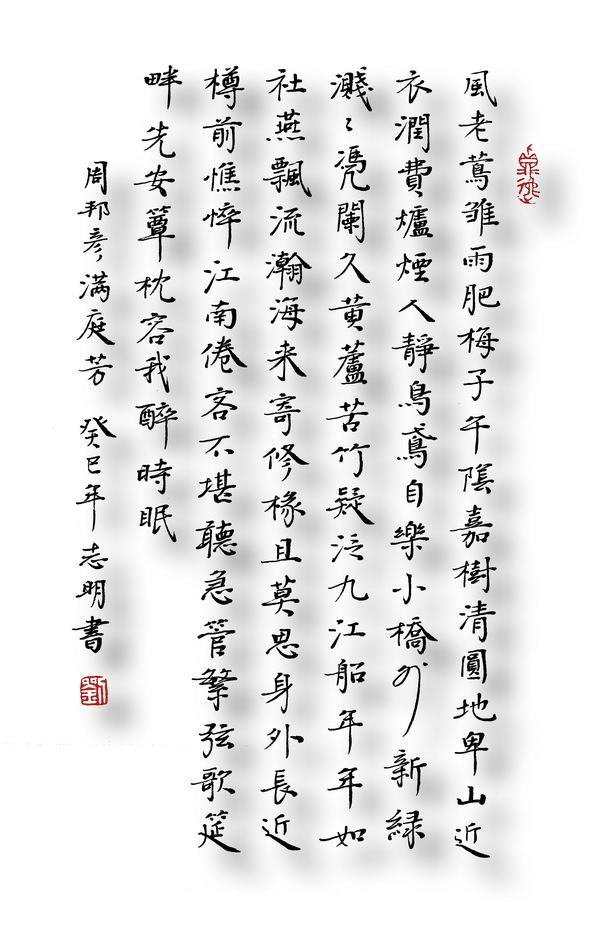 風老鶯雛雨肥梅子午陰嘉樹清圓地卑山近
衣潤費爐煙人靜鳥鳶自樂小橋外新緑
濺〻凴闌久黄蘆苦竹疑泛九江船年年如
社燕飄流瀚海来寄修椽且莫思身外長近
樽前憔悴江南倦客不堪聽急管繁弦歌筵
畔先安簟枕容我醉時眠
周邦彦满庭芳 癸巳年志明書
劉